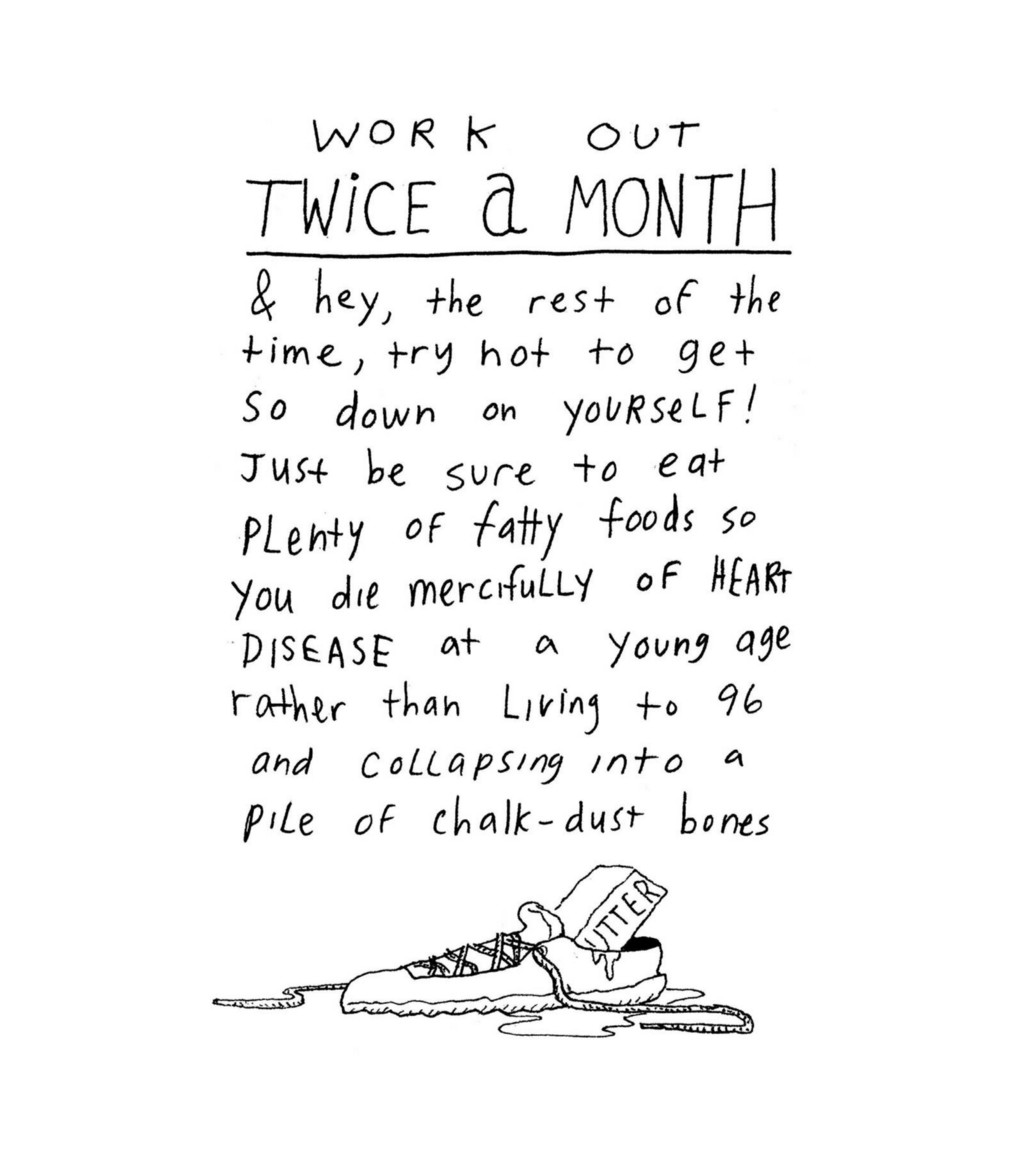 WORK OUT
TWiCE a MONTH
& hey, the rest of the
time, try not to get
so down on YOURSeLF!
Just be sure to eat
PLenty of fatty foods so
you die mercifuLLY of HEART
DISEASE at a young age
rather than Living to 96
and coLLapsing into a
piLe of chalk-dust bones
UTTER